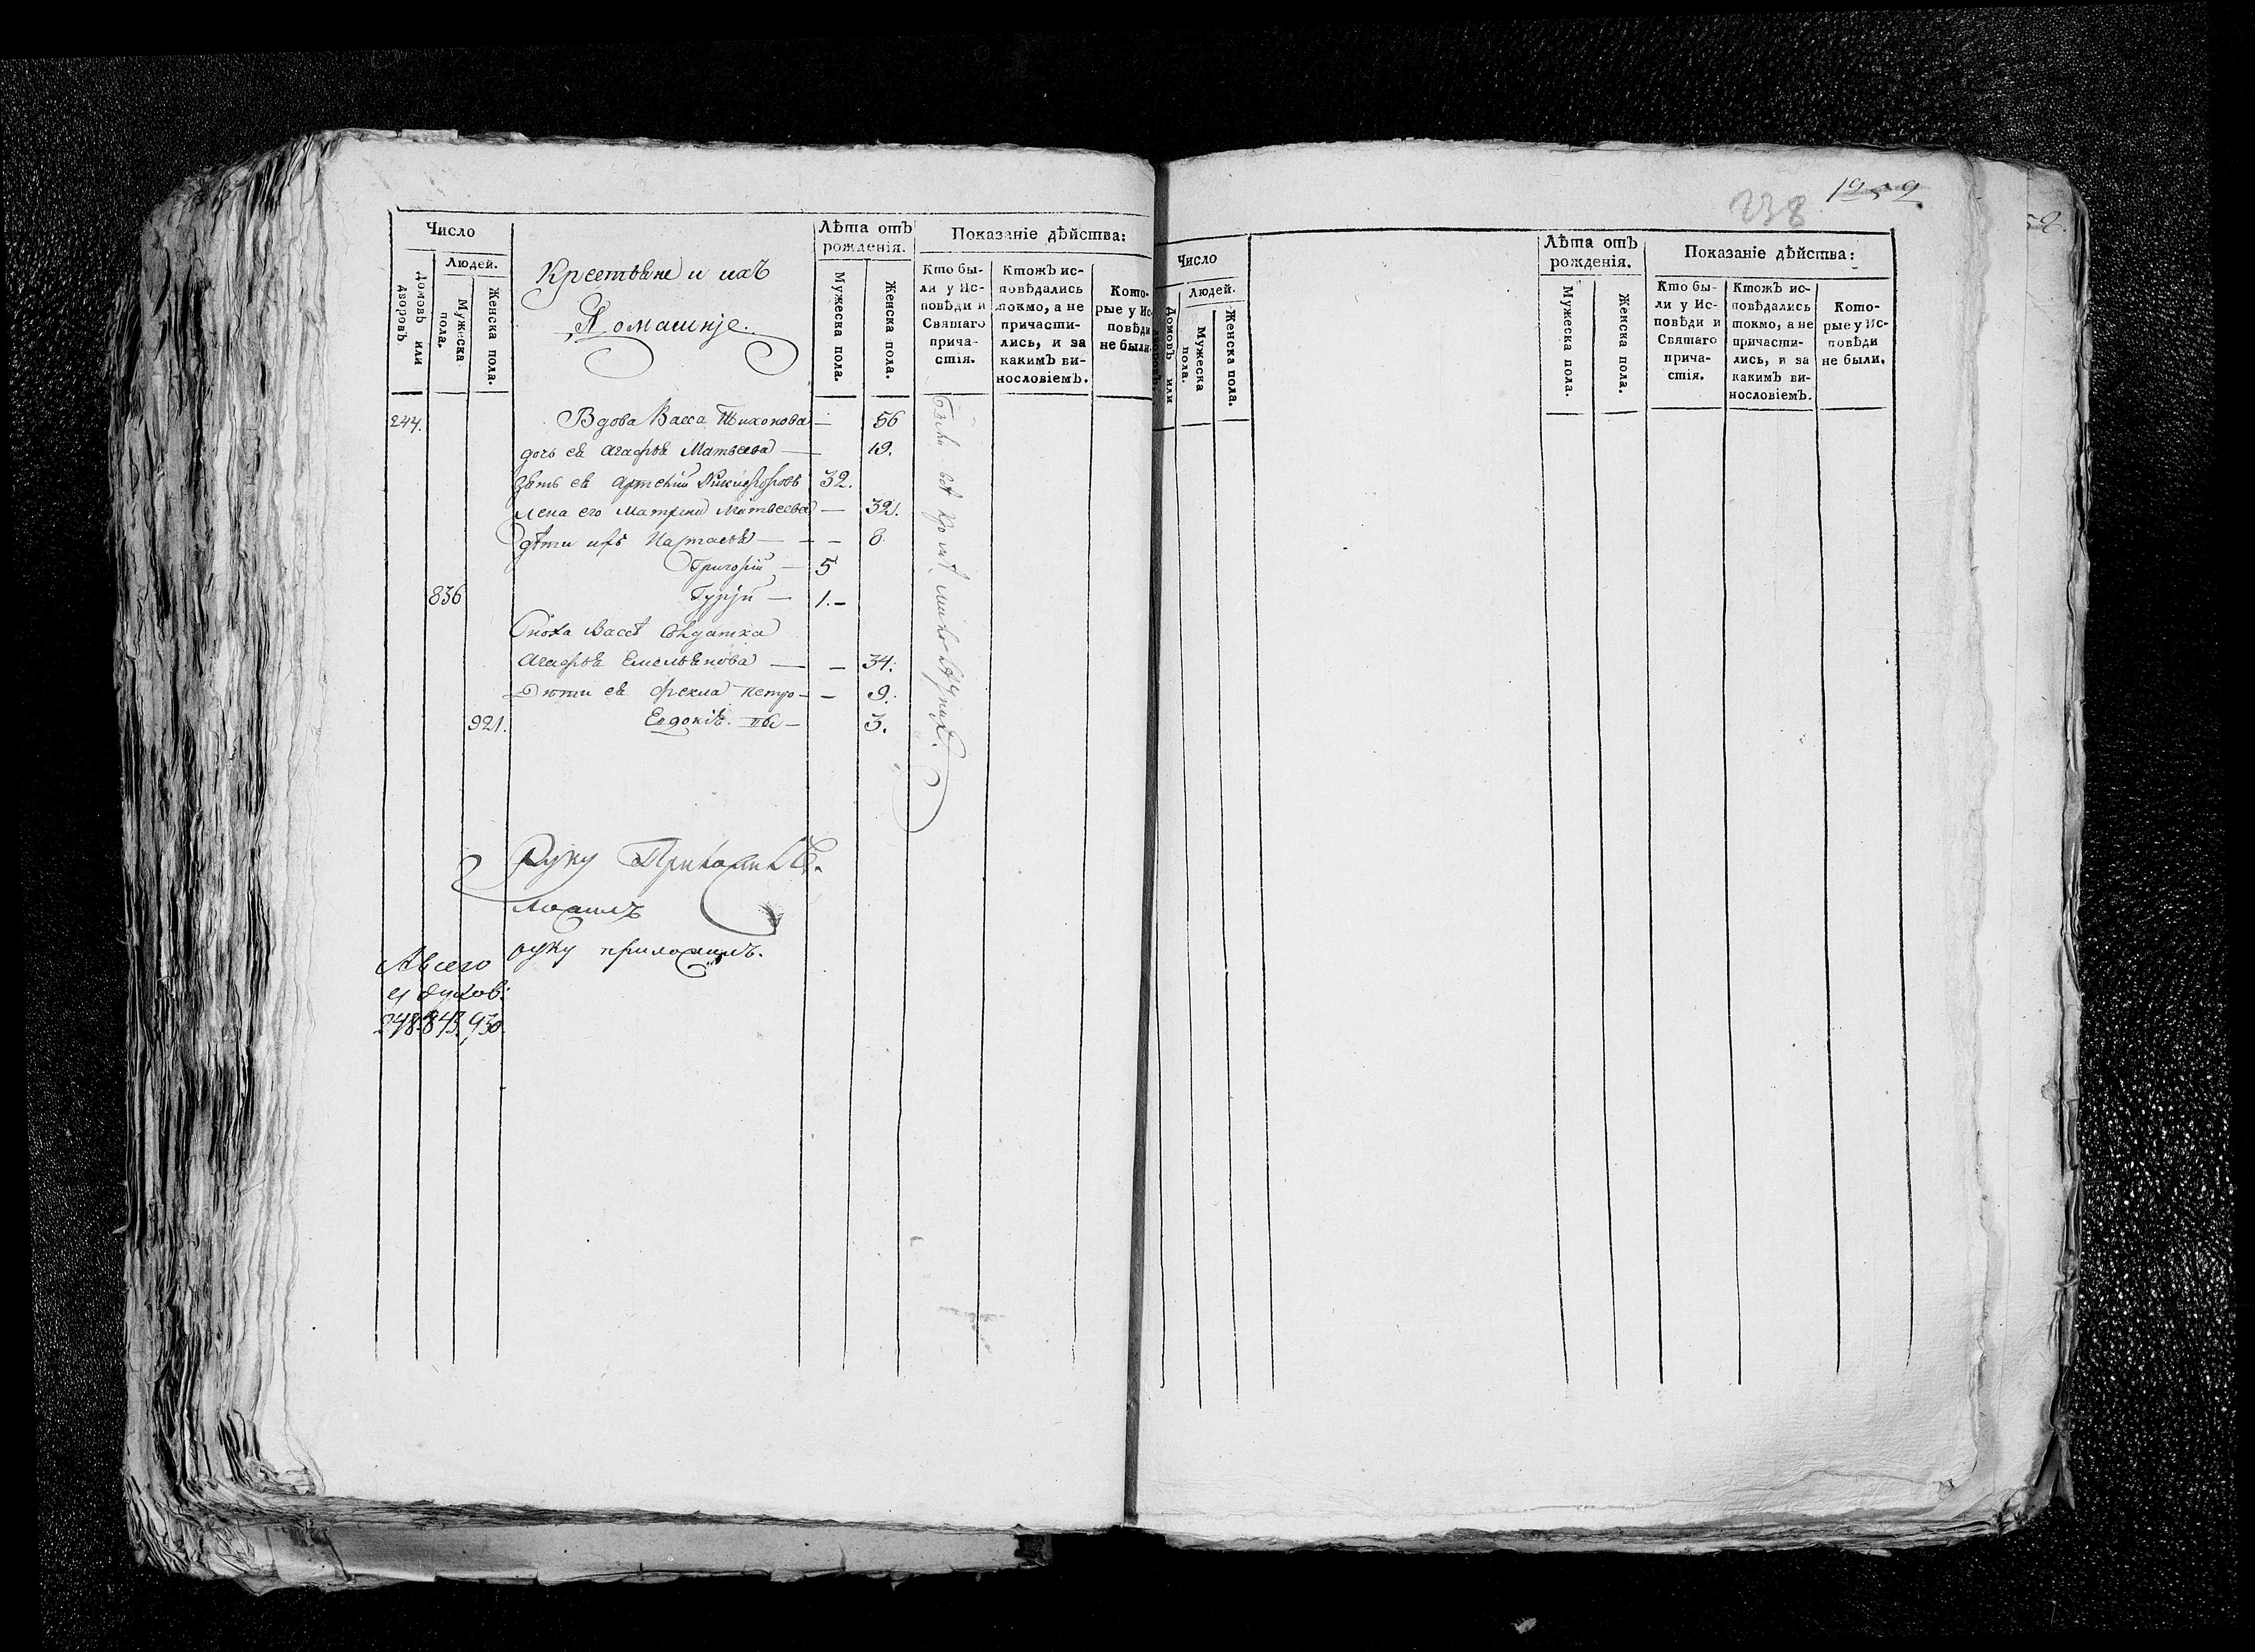 Число
Людей.
Домовъ или дворовъ.
Мужеска пола.
Женска пола.
Крестьяне и ихъ
Домашніе.
Лѣта отъ рожденія.
Мужеска пола.
Женска пола.
Показаніе дѣйства:
Кто бы-
ли у Ис-
повѣди и
Святаго
прича-
стія.
Ктожъ ис-
повѣдались
токмо, а не
причасти-
лись, и за
какимъ ви-
нословіемъ.
Кото-
рые у Ис-
повѣди
не были.
244. Вдова Васса Тихонова — 56
дочь ея Агафья Матвеева — 19.
Зять ея Никифоровъ 32.
Жена его Матрена Матвеева — 32.
Дѣти ихъ — — 8
Григорій — 5
836 Гурій — 1. —
Сноха Вассы Солдатка
Агафья Емельянова — — 34.
Дѣти ея Фекла Петро- — 9.
921. Евдокія вы — 3.
Руку
руку приложилъ.
Авсего
248. 843. 930.
238
Число
Людей.
Домовъ или дворовъ.
Мужеска пола.
Женска пола.
Лѣта отъ
рожденія.
Мужеска пола.
Женска пола.
Показаніе дѣйства:
Кто бы-
ли у Ис-
повѣди и
Святаго
прича-
стія.
Ктожъ ис-
повѣдались
токмо, а не
причасти-
лись, и за
какимъ ви-
нословіемъ.
Кото-
рые у Ис-
повѣди
не были.